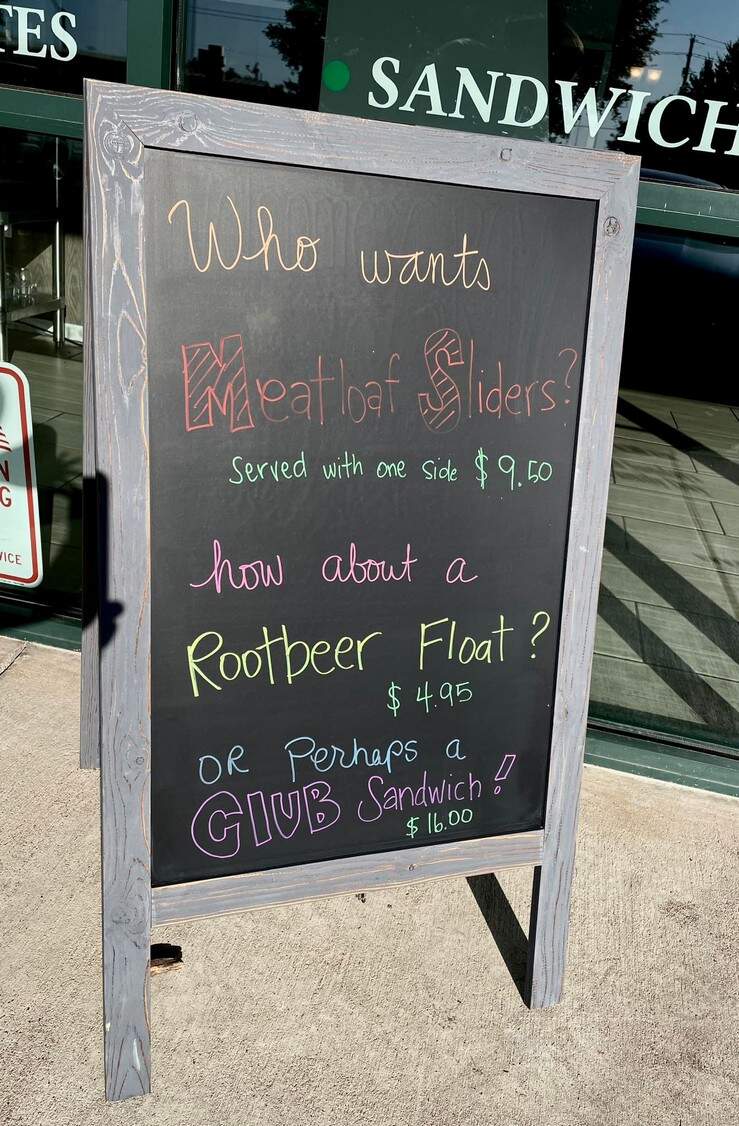 TES
SANDWICH
Who wants
Meatloaf Sliders?
Served with one side $9.50
how about a
Rootbeer Float?
$4.95
OR Perhaps a
ClUB Sandwich!
$16.00
N
G
VICE